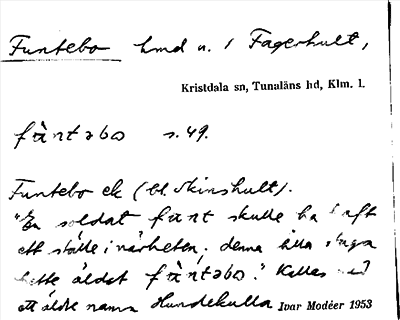 Funtebo hmd u. / Fagerhult,
Kristdala sn, Tunaläns hd, Klm. l.
fàntəbo s. 49.
Funtebo ek (bl. Skinshult).
"En soldat fànt skulle ha haft
ett ställe i närheten; denna lilla stuga
hette äldst fàntəbo." Kallas med
ett äldre namn Hundekulla Ivar Modéer 1953